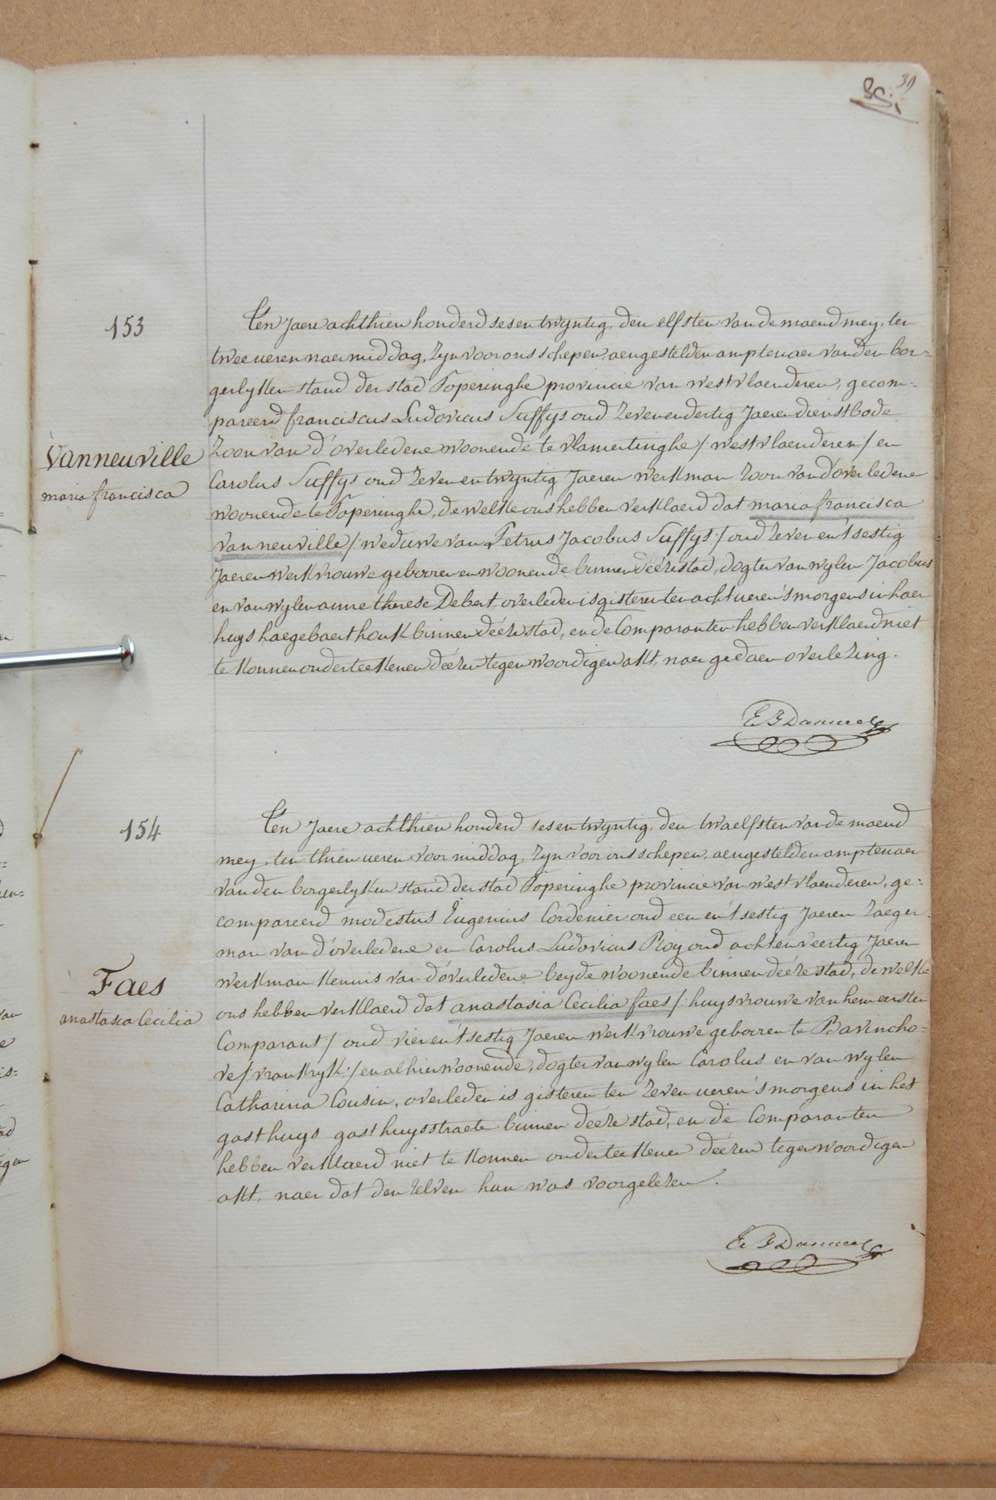 39
153
Ten Jaere achthien honderd sesentwyntig, den elfsten van de maend mey, ten
twee ueren naermiddag, zyn voor ons schepen, aengestelden amptenaer van den bor-
gerlyken stand der stad Poperinghe provincie van westvlaenderen, gecom-
pareerd franciscus Ludovicus Suffys oud zevenendertig Jaeren dienstbode
zoon van d'overledene woonende te vlamertinghe / westvlaenderen / en
Carolus Suffys oud zevenentwyntig Jaeren werkman zoon van d'overledene
woonende te Poperinghe, de welke ons hebben verklaerd dat maria francisca
vanneuville / weduwe van Petrus Jacobus Suffys / oud zeven en't sestig
Jaeren werkvrouwe geboren en woonende binnen deéze stad, dogter van wylen Jacobus
en van wylen anne therese Debert overleden is gisteren ten acht ueren 's morgens in haer
huys haegebaert houk binnen deéze stad, en de Comparanten hebben verklaerd niet
te konnen onderteekenen deézen tegenwoordigen akt, naer gedaen overlezing.
Vanneuville
maria francisca
154
Ten Jaere achthien honderd sesentwyntig, den twaelfsten van de maend
mey, ten thien ueren voormiddag, zyn voor ons schepen, aengestelden amptenaer
van den borgerlyken stand der stad Poperinghe provincie van westvlaenderen, ge-
compareerd modestus Eugenius Cordenier oud een en't sestig Jaeren zaeger
man van d'overledene en Carolus Ludovicus Roy oud achtenveertig Jaeren
werkman kennis van d'overledene beyde woonende binnen deéze stad, de welke
ons hebben verklaerd dat anastasia Cecilia faes / huysvrouwe van hem eersten
Comparant / oud vier en't sestig Jaeren werkvrouwe geboren te Bavincho-
ve / vrankryk / en alhier woonende, dogter van wylen Carolus en van wylen
Catharina Cousin, overleden is gisteren ten zeven ueren 's morgens in het
gasthuys gasthuysstraete binnen deéze stad, en de Comparanten
hebben verklaerd niet te konnen onderteekenen deézen tegenwoordigen
akt, naer dat den zelven hun was voorgelezen.
Faes
anastasia Cecilia